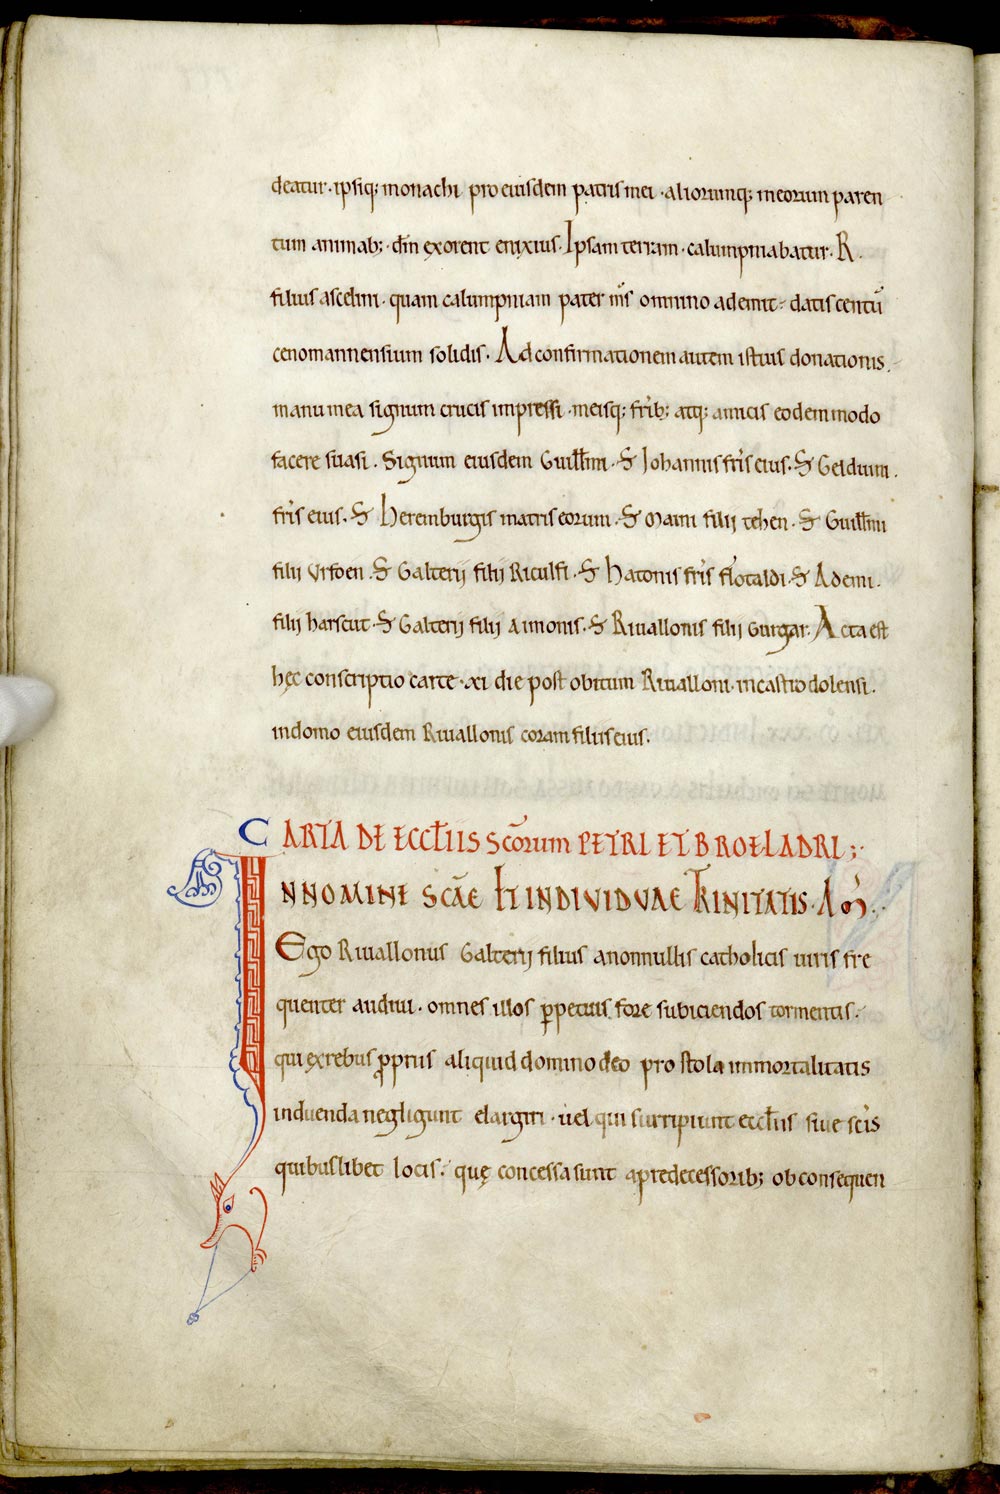 deatur · ipsiq; monachi pro eiusdem patris mei · aliorumq; meorum paren
tum animab; · dm̄ exorent enixius. Ipsam terram · calumpniabatur · R ·
filius ascelini · quam calumpniam pater m̄s omnino ademit · datis centū
cenomannensium solidis. Ad confirmationem autem istius donationis
manu mea signum crucis impressi · meisq; frīb; atq; amicis eodem modo
facere suasi. Signum eiusdem Guillmi · & Johannis frīs eius · & Gelduini ·
frīs eius · & Heremburgis matris eorum · & Maini filij tehen · & Guillmi
filij Urfoen · & Galterij filij Riculfi · & Hatonis frīs flotaldi · & Ademi ·
filij harscut · & Galterij filij Aimonis · & Riuallonis filij Gurgar. Acta est
hęc conscriptio carte · xi die post obitum Riualloni · in castro dolensi ·
in domo eiusdem Riuallonis coram filiis eius.
CARTA DE ECCLIIS Scōrum PETRI ET BROELADRI ;
IN NOMINE SCĀE ET INDIVIDVAE TRINITATIS · AM̄.
Ego Riuallonus Galterij filius a nonnullis catholicis uiris fre
quenter audiui · omnes illos ꝑpetuis fore subiciendos tormentis ·
qui ex rebus ꝓpriis aliquid domino deo pro stola immortalitatis
induenda negligunt elargiri · uel qui surripiunt eccliis siue scīs
quibuslibet locis · quę concessa sunt a predecessorib; ob consequen